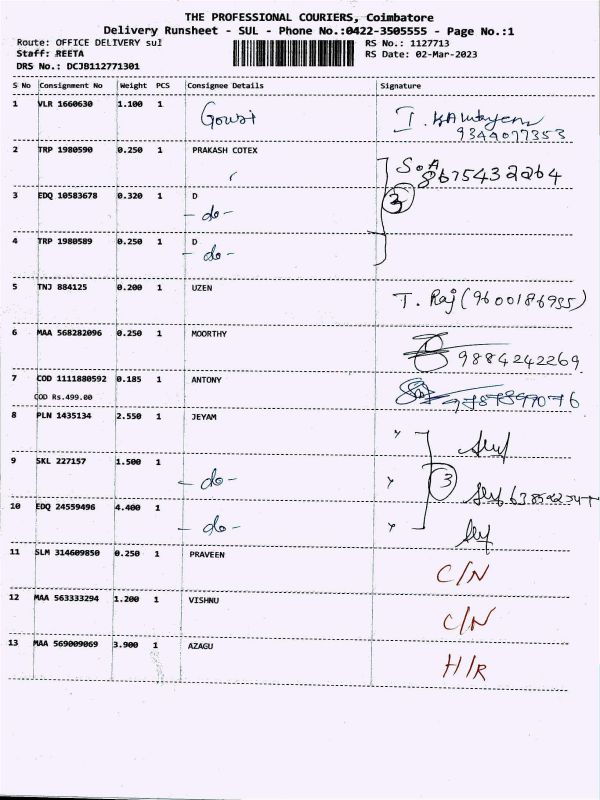 THE PROFESSIONAL COURIERS, Coimbatore
Delivery Runsheet - SUL - Phone No.:0422-3505555 - Page No.:1
Route: OFFICE DELIVERY sul RS No.: 1127713
Staff: REETA RS Date: 02-Mar-2023
DRS No.: DCJB112771301
S No Consignment No Weight PCS Consignee Details Signature
1 VLR 1660630 1.100 1 Gowri
9344077353
2 TRP 1980590 0.250 1 PRAKASH COTEX S.A
8675432264
3 EDQ 10583678 0.320 1 D 3
- do -
4 TRP 1980589 0.250 1 D
- do -
5 TNJ 884125 0.200 1 UZEN T. Raj (9600186955)
6 MAA 568282096 0.250 1 MOORTHY
9884242269
7 COD 1111880592 0.185 1 ANTONY
COD Rs.499.00
8 PLN 1435134 2.550 1 JEYAM
9 SKL 227157 1.500 1
- do - 3
10 EDQ 24559496 4.400 1
- do -
11 SLM 314609850 0.250 1 PRAVEEN C/N
12 MAA 563333294 1.200 1 VISHNU C/N
13 MAA 569009069 3.900 1 AZAGU H/R